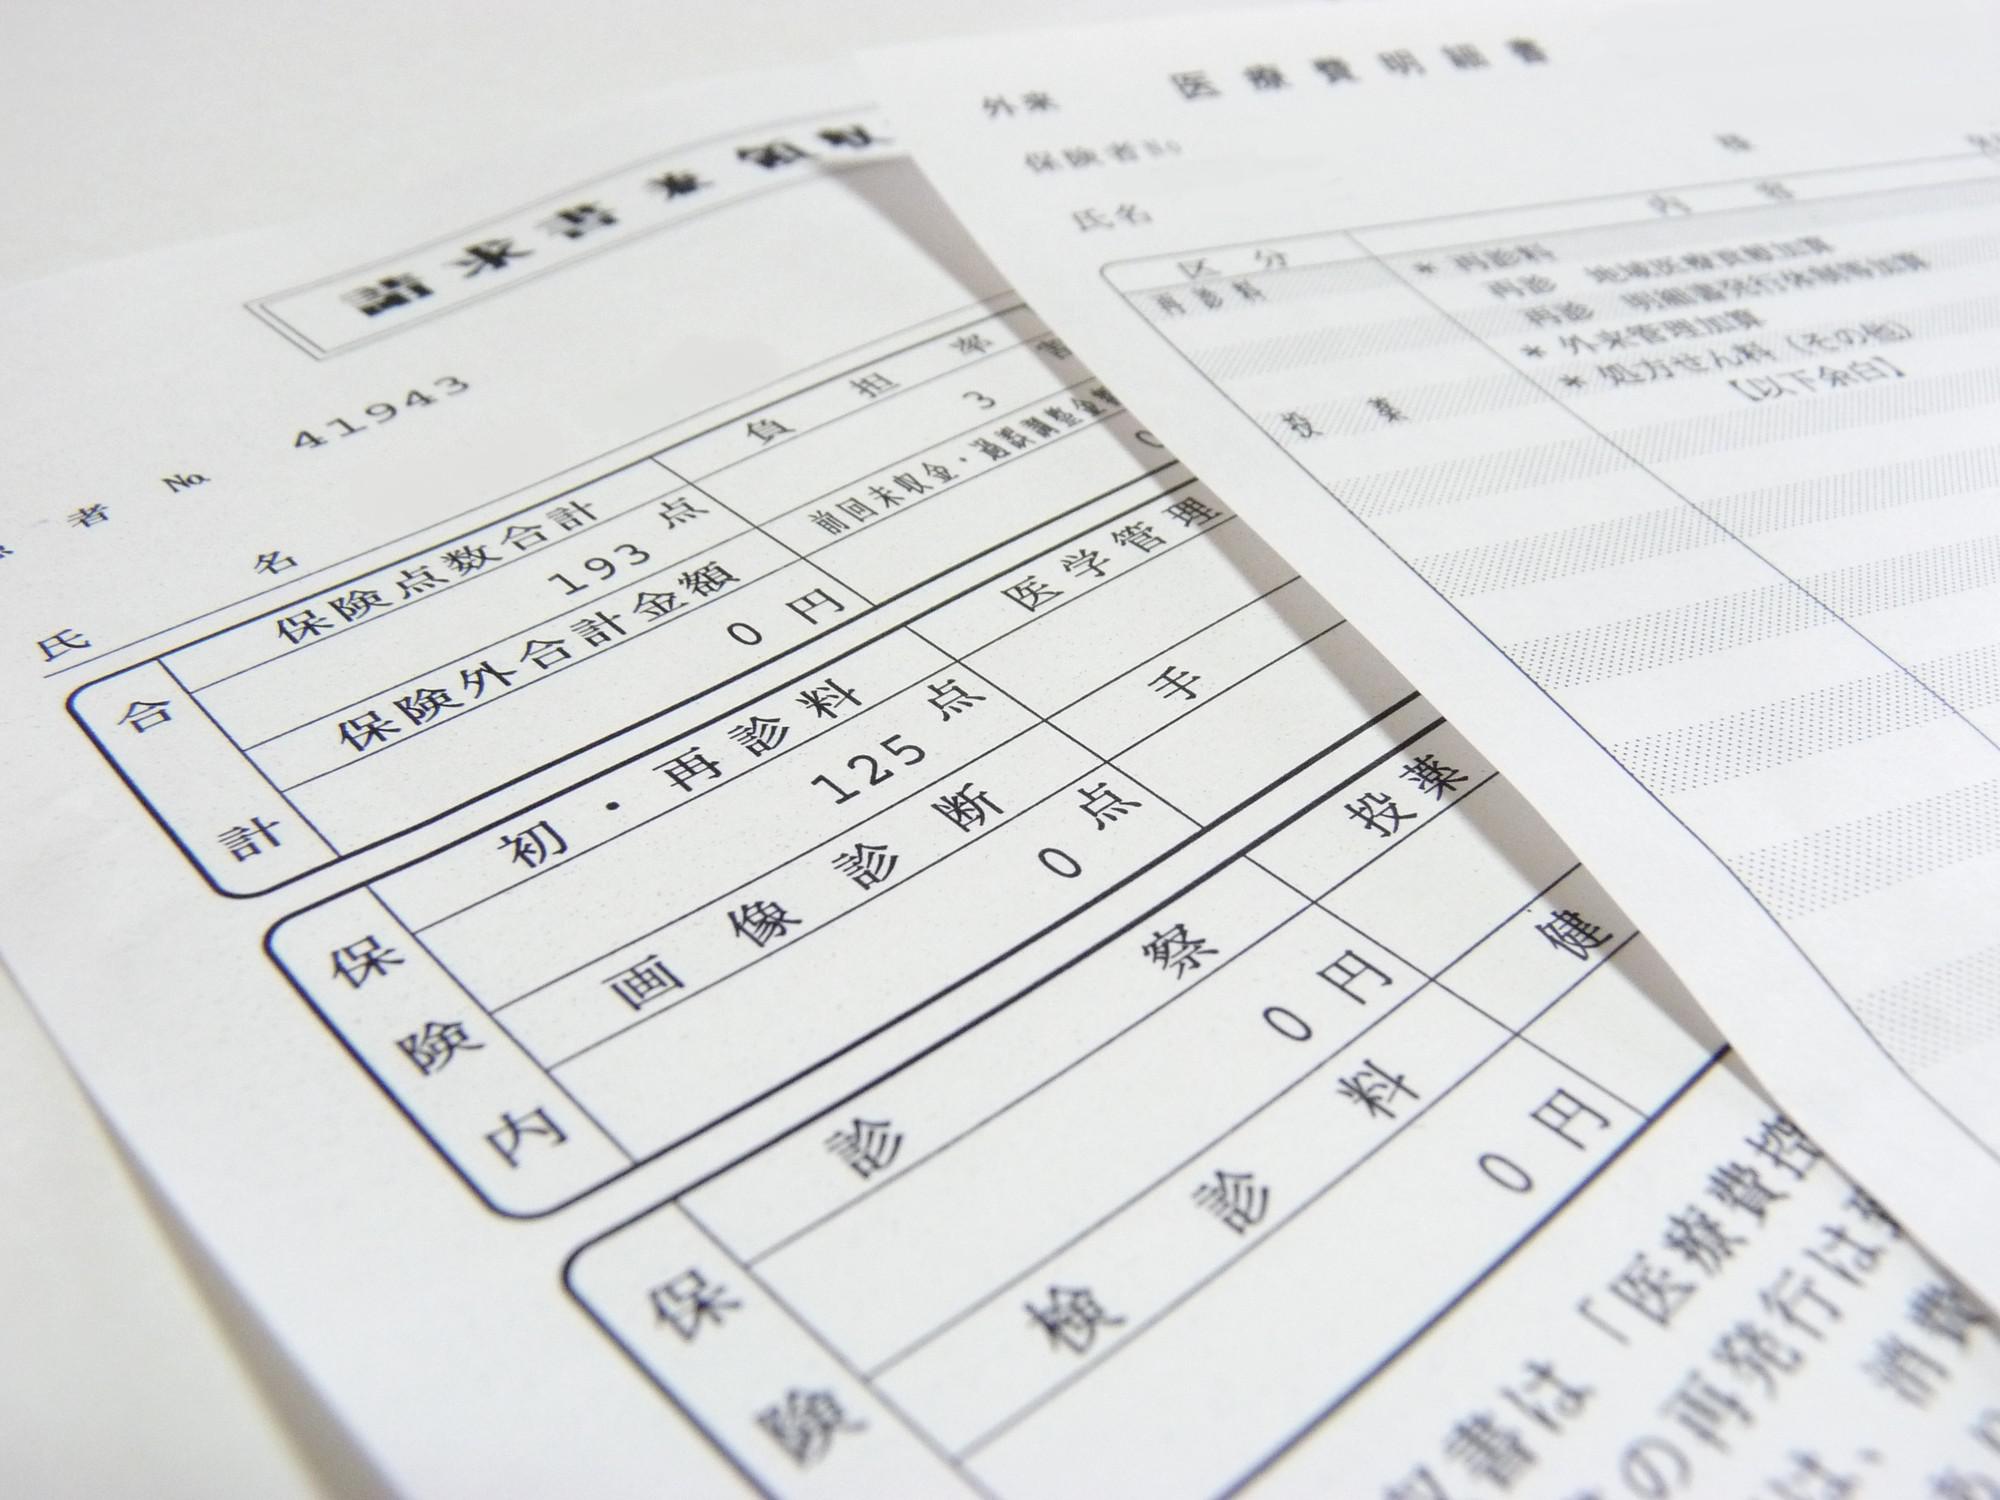 請求書兼領収
者 No 41943
氏 名
合計
保険点数合計
193 点
保険外合計金額
0 円
負 担 率
3
前回未収金・過誤調整金額
0
保険内
初・再診料
125 点
画像診断
0 点
医学管理
手
保険
診察
0 円
検診料
0 円
投薬
健
収書は「医療費控
の再発行は
は、消費
外来 医療費明細書
保険者No
氏名
様
区 分
内 容
再診料
* 再診料
再診 地域医療貢献加算
再診 明細書発行体制等加算
* 外来管理加算
投 薬
* 処方せん料（その他）
【以下余白】